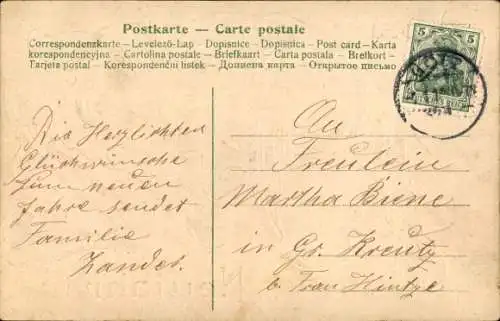 Postkarte — Carte postale
Correspondenzkarte – Levelező-Lap – Dopisnice – Dopisnica – Post card – Karta
korespondencyjna – Cartolina postale – Briefkaart – Carta postala – Brefkort –
Tarjeta postal – Korespondenční listek – Дописна карта – Открытое письмо
5 5
Die Herzlichten
Glückwünsche
zum neuen
Jahre sendet
Familie
Zander.
An
Freulein
Martha Biene
in Gr. Kreutz
b. Frau Hintze